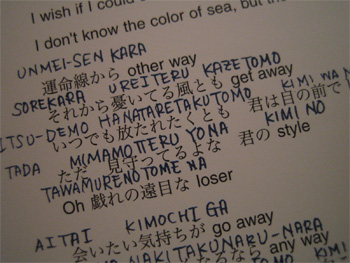 I wish if I could s
I don't know the color of sea, but the
UNMEI-SEN KARA
運命線から other way
SOREKARA UREITERU KAZETOMO
それから憂いてる風とも get away
ITSU-DEMO HANATARETAKUTOMO KIMI WA
いつでも放たれたくとも 君は目の前で
TADA MIMAMOTTERU YONA KIMI NO
ただ 見守ってるよな 君の style
TAWAMURENOTOME NA
Oh 戯れの遠目な loser
AITAI KIMOCHI GA
会いたい気持ちが go away
NAKITAKUNARU-NARA
なるなら any way